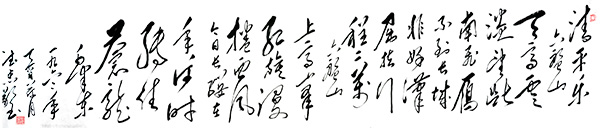 清平乐
六盘山
天高云
淡望断
南飞雁
不到长城
非好汉
屈指行
程二万
六盘山
上高峰
红旗漫
卷西风
今日长缨在
手何时
缚住
苍龙
毛泽东
一九六一年